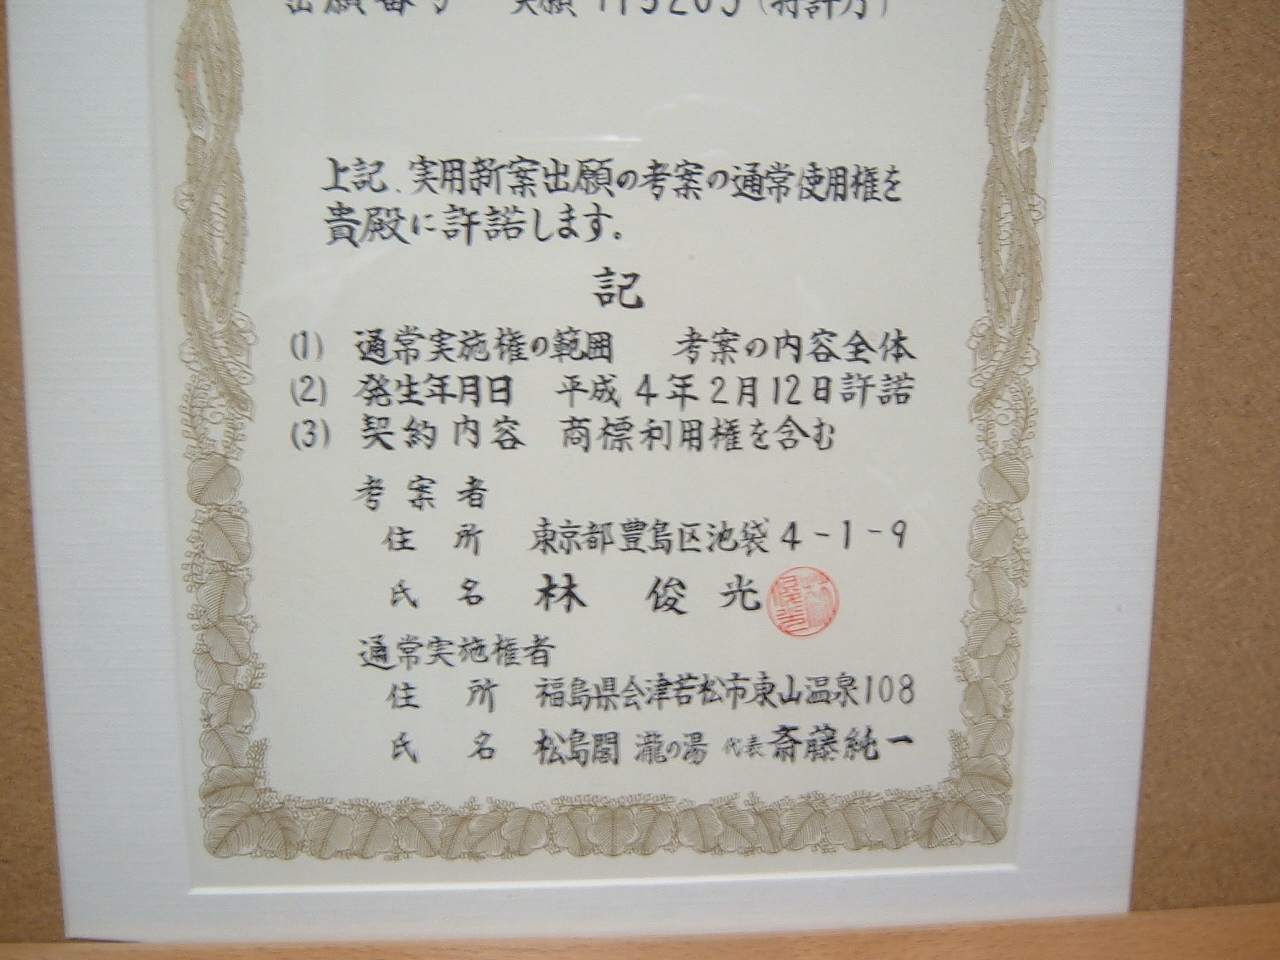 出願番号 実願 (特許庁)
上記、実用新案出願の考案の通常使用権を
貴殿に許諾します。
記
(1) 通常実施権の範囲 考案の内容全体
(2) 発生年月日 平成4年2月12日許諾
(3) 契約内容 商標利用権を含む
考案者
住所 東京都豊島区池袋4-1-9
氏名 林 俊光
通常実施権者
住所 福島県会津若松市東山温泉108
氏名 松島閣 瀧の湯 代表 斎藤純一